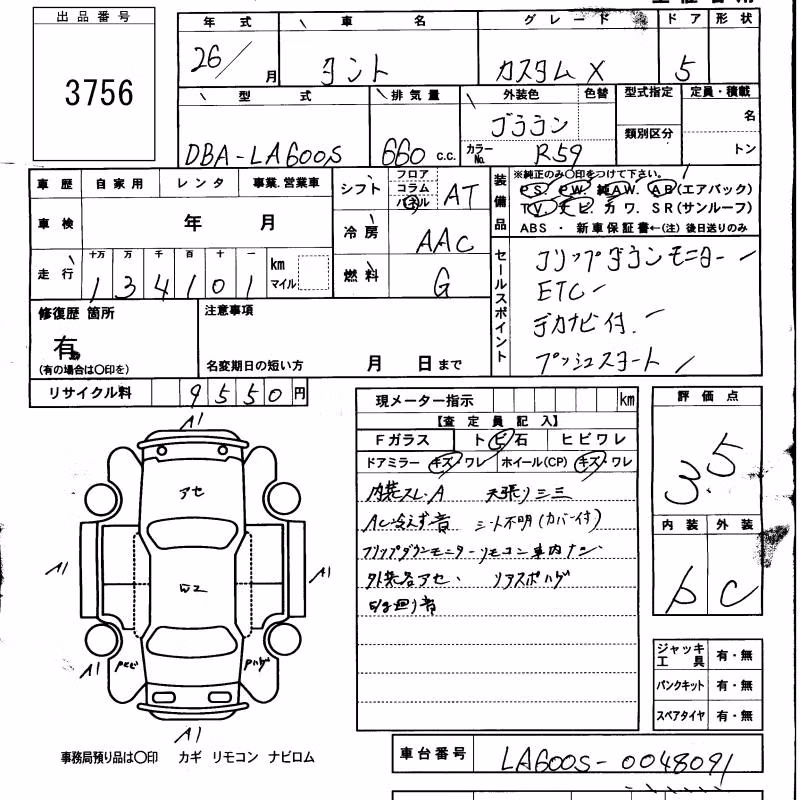 出品番号
3756
年式 車名 グレード ドア 形状
26/ 月 タント カスタムX 5
型式 排気量 外装色 色替 型式指定 定員・積載
DBA-LA600S 660 c.c. カラーNo. R59 類別区分 名 トン
車歴 自家用 レンタ 事業.営業車 シフト フロア コラム パネル AT
装備品 ※純正のみ○印をつけて下さい。
PS PW. 純AW. AB(エアバック)
TV. ナビ. カワ. SR(サンルーフ)
ABS ・ 新車保証書←(注)後日送りのみ
車検 年 月 冷房 AAC
走行 十万 万 千 百 十 一 km マイル 燃料 G
134101
セールスポイント
フリップダウンモニター
ETC
デカナビ付.
プッシュスタート
修復歴 箇所 注意事項
有
(有の場合は○印を) 名変期日の短い方 月 日まで
リサイクル料 9550円
現メーター指示 km
【査定員記入】
Fガラス トビ石 ヒビワレ
ドアミラー キズ・ワレ ホイール(CP) キズ・ワレ
内装スレ.A 天張りシミ
AC冷えず音 シート不明(カバー付)
フリップダウンモニターリモコン車内ナシ
外装各アセ. リアスポハゲ
評価点
3.5
内装 外装
C
A1
アセ
A1 A1
A1
A1
ジャッキ工具 有・無
パンクキット 有・無
スペアタイヤ 有・無
事務局預り品は○印 カギ リモコン ナビロム
車台番号 LA600S-0048091